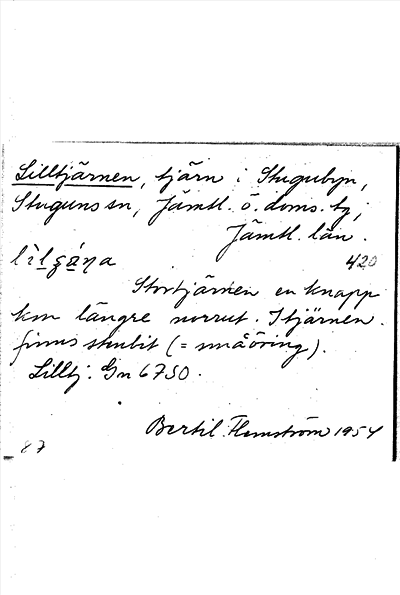 Lilltjärnen, tjärn i Stugubyn,
Stuguns sn, Jämtl. ö. doms. tg,
Jämtl. län.
420
Stortjärnen en knapp
km längre norrut. I tjärnen
finns stubit (= småöring).
Lilltj. Gn 6750.
Bertil Flemström 1954
87